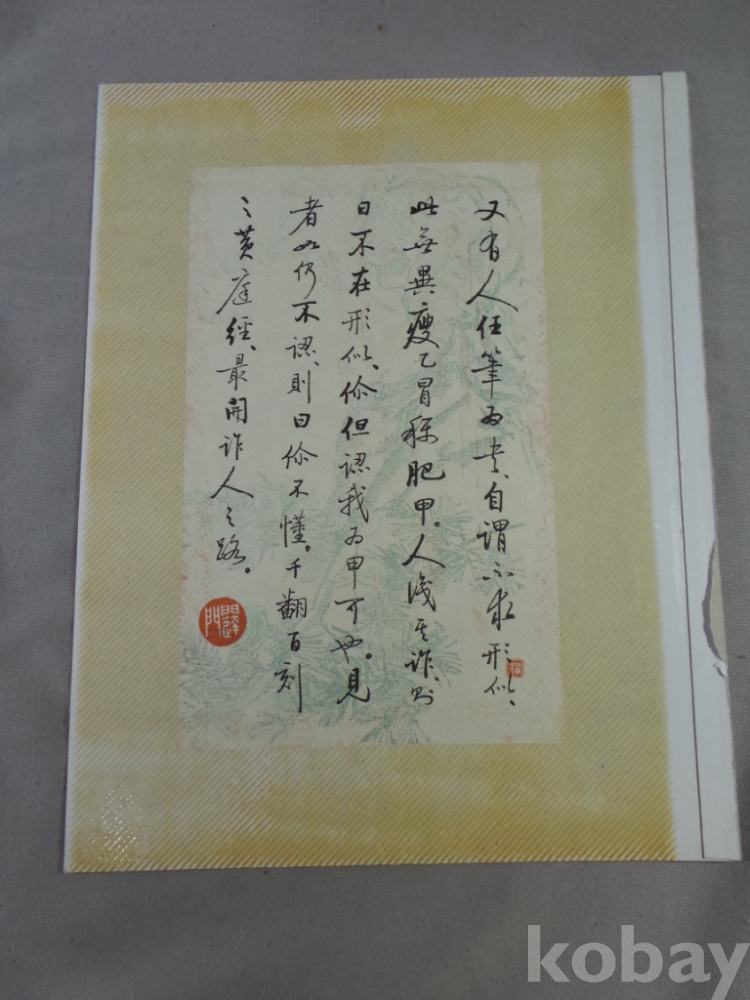 又有人任筆為書、自謂不求形似、
此無異瘦乙冒稱肥甲。人識其詐、則
曰不在形似、你但認我為甲可也。見
者如仍不認、則曰你不懂。千翻百刻
之黃庭經、最開詐人之路。
kobay